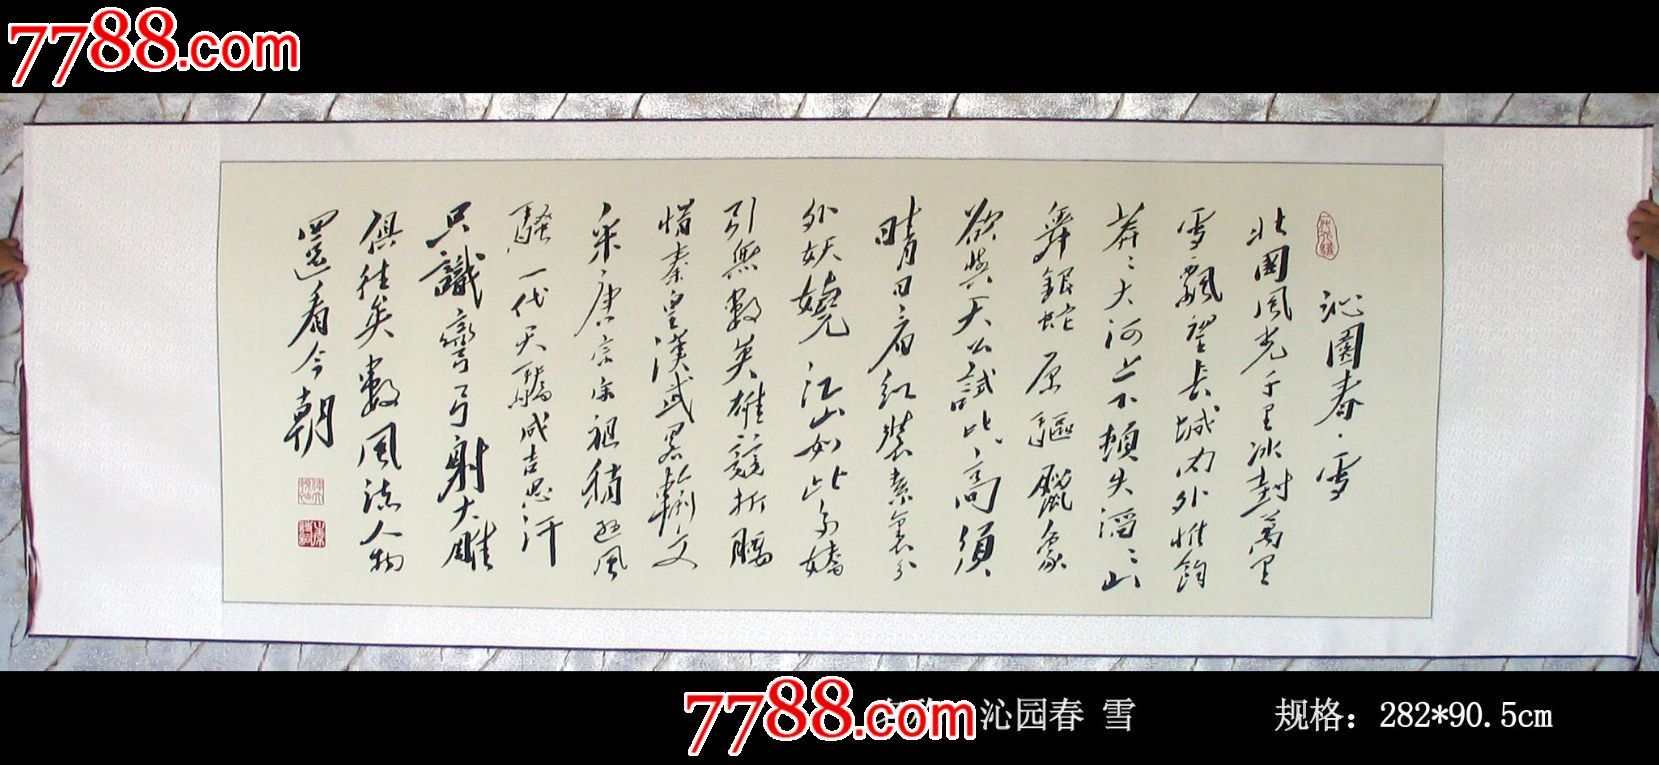 7788.com
沁園春·雪
北國風光千里冰封萬里
雪飄望長城內外惟餘
莽〻大河上下頓失滔〻山
舞銀蛇原驅臘象
欲與天公試比高須
晴日看紅裝素裹分
外妖嬈江山如此多嬌
引無數英雄競折腰
惜秦皇漢武略輸文
采唐宗宋祖稍遜風
騷一代天驕成吉思汗
只識彎弓射大雕
俱往矣數風流人物
還看今朝
7788.com
沁园春 雪
规格：282*90.5cm